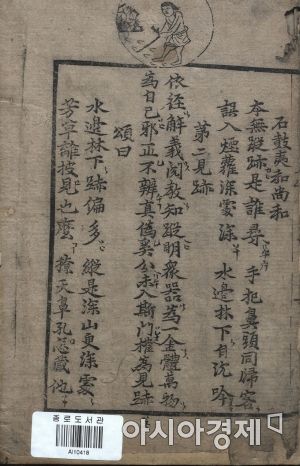 石鼓夷和尚和
本無蹤跡是誰尋 手把鼻頭同歸客
誤入煙蘿深處深 水邊林下自沉吟
第二見跡
依經解義閱教知蹤明衆器爲一金體萬物
爲自己邪正不辨真僞奚分未入斯門權爲見跡
頌曰
水邊林下跡偏多 縱是深山更深處
芳草離披見也麼 撩天鼻孔怎藏他
종로도서관
AI10418
아시아경제